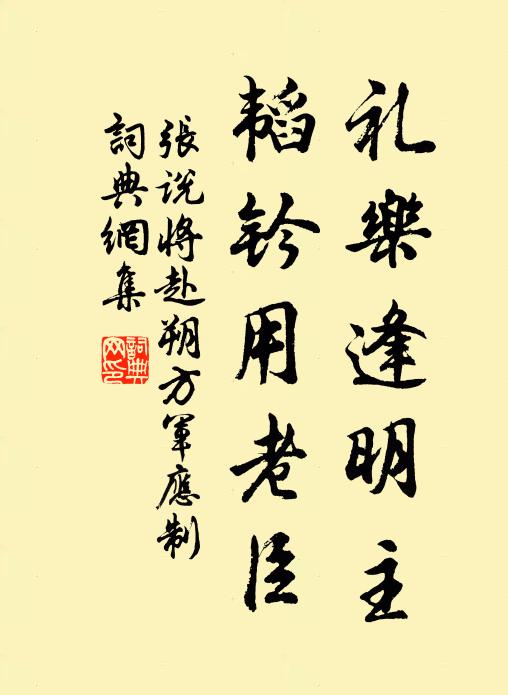 礼樂逢明主
韜鈐用老臣
張説將赴朔方軍應制
詞典網集
詞典网印